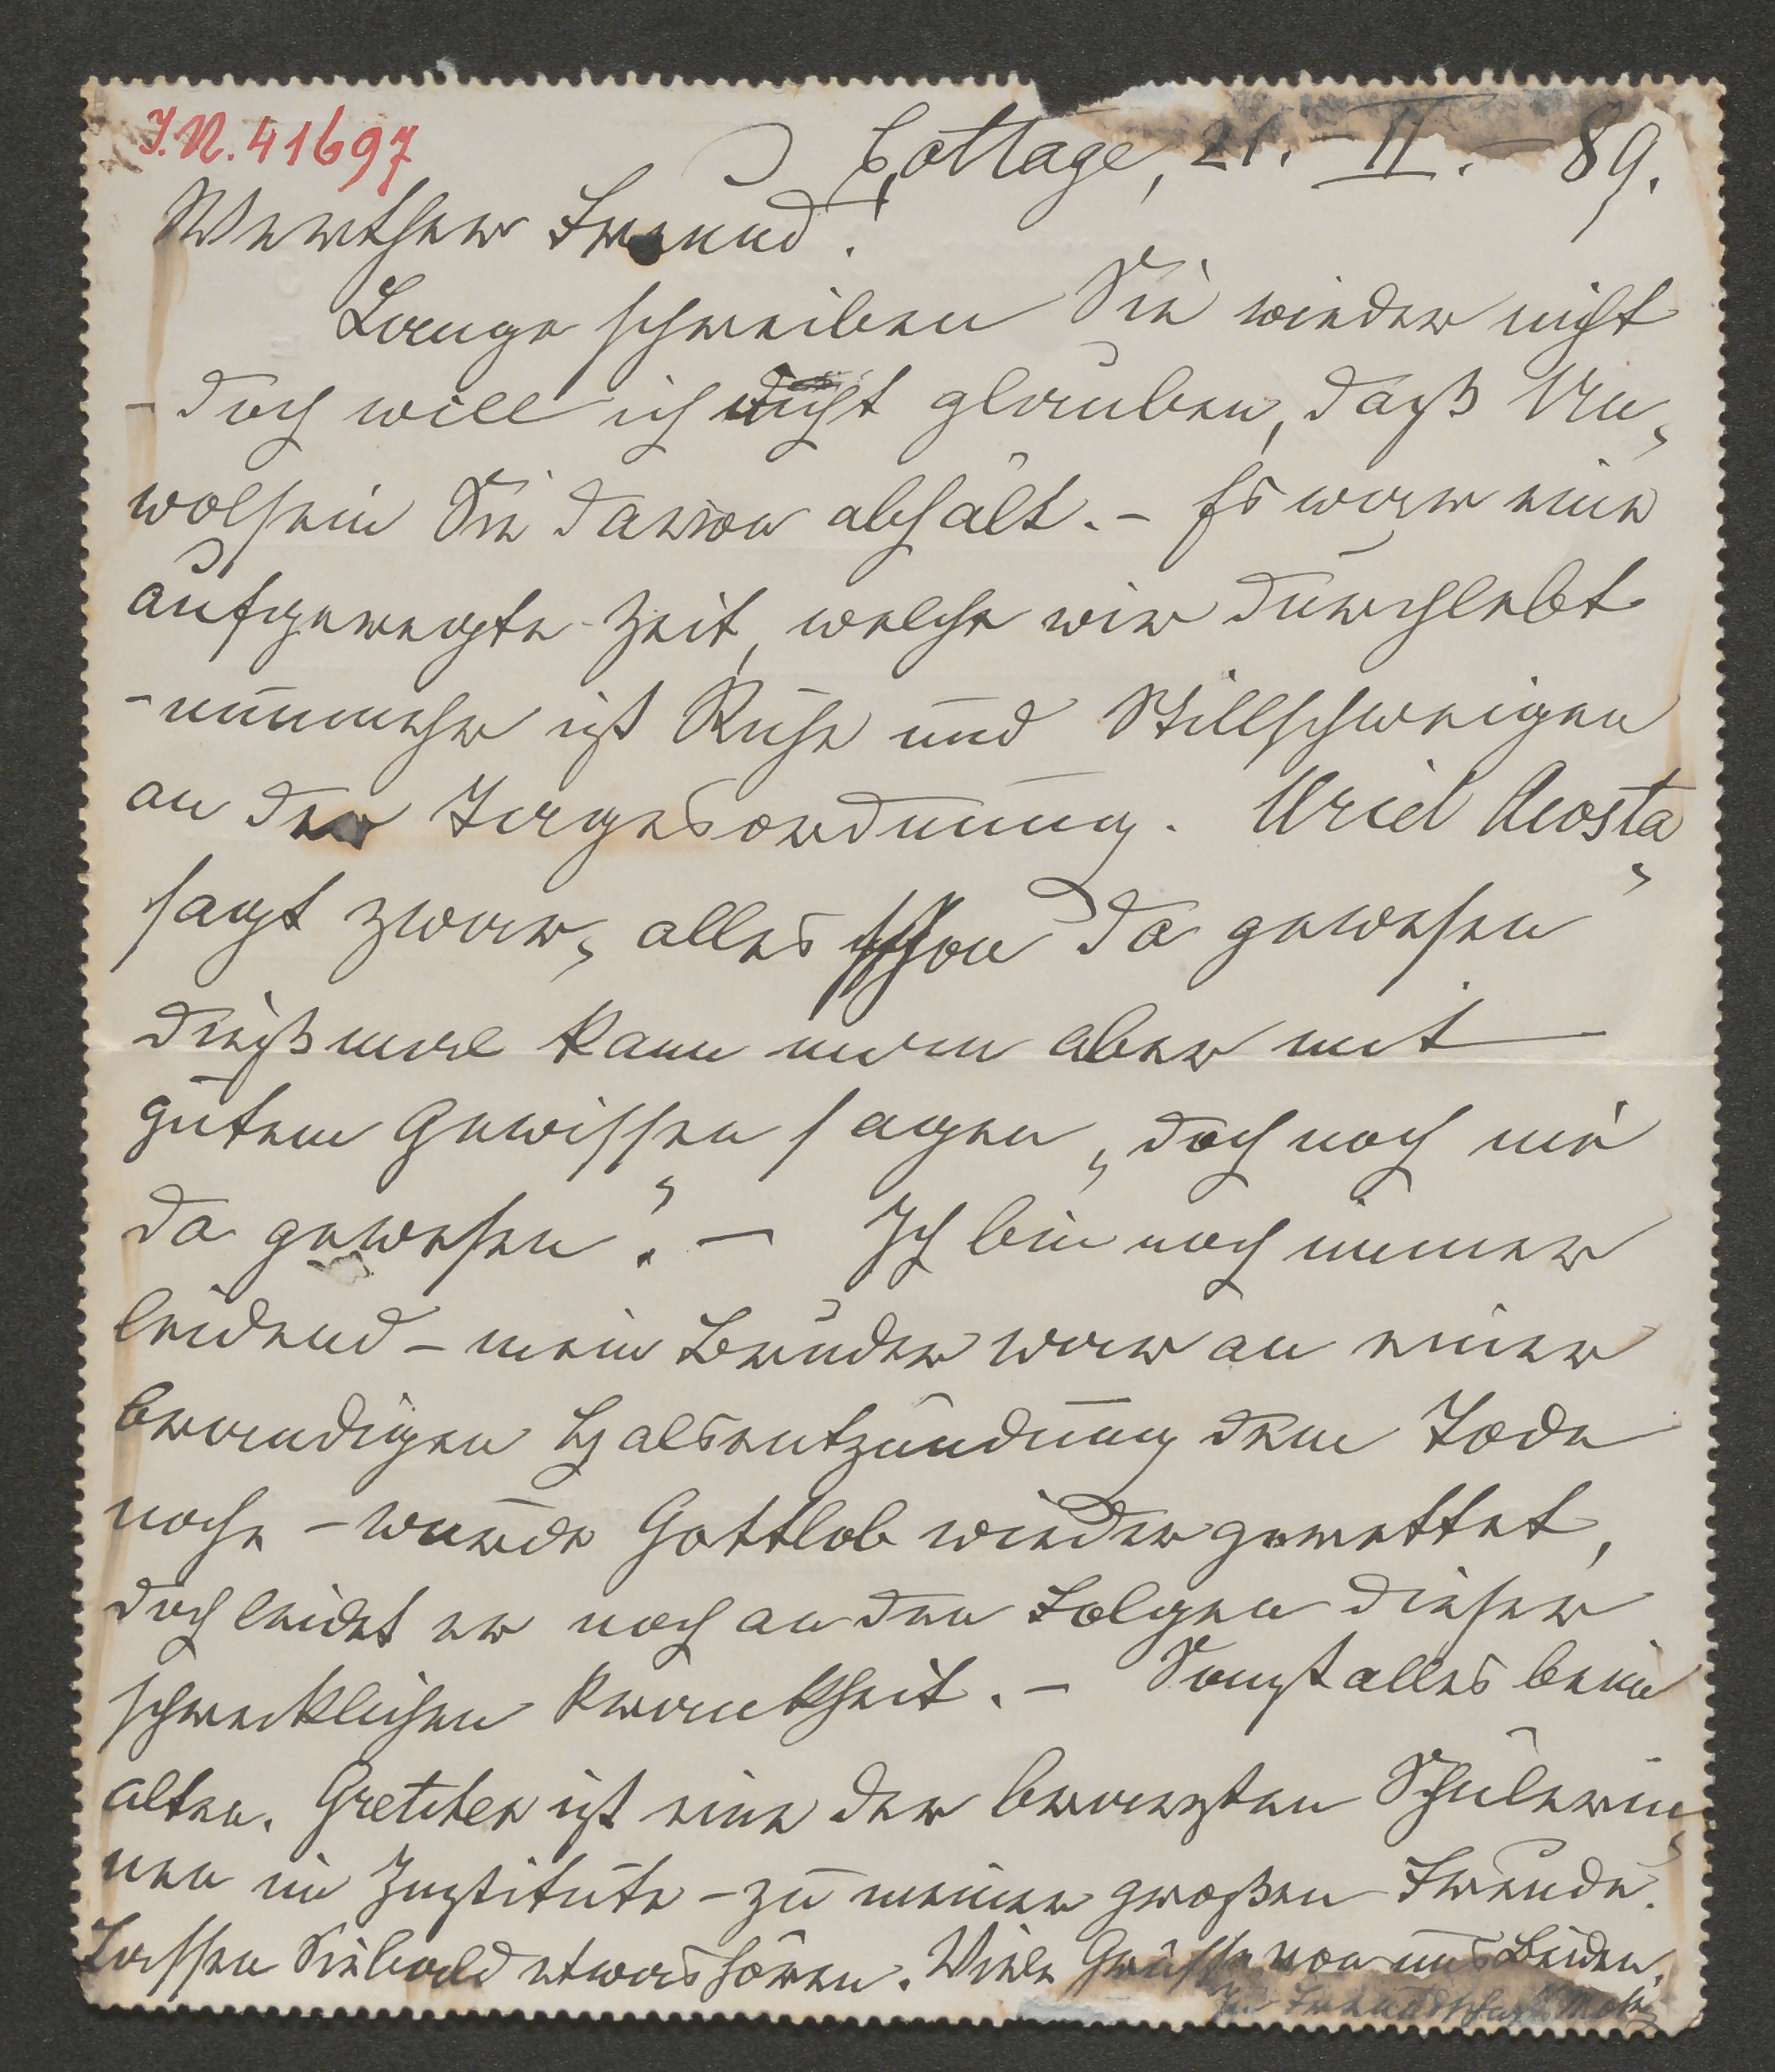 J.N. 41697
Cottage, 21. - II. - 89.
Werther Freund!
Lange schreiben Sie wieder nicht
- doch will ich nicht glauben, daß Un„
wolsein Sie davon abhält. - Es war eine
aufgeregte Zeit, welche wir durchlebt
- nunmehr ist Ruhe und Stillschweigen
an der Tagesordnung. Uriel Acosta
sagt zwar „alles schon da gewesen“
dießmal kann man aber mit
gutem Gewissen sagen „doch noch nie
da gewesen“. - Ich bin noch immer
leidend - mein Bruder war an einer
brandigen Halsentzündung dem Tode
nahe - wurde Gottlob wieder gerettet,
doch leidet er noch an den Folgen dieser
schrecklichen Krankheit. - Sonst alles beim
alten. Gretchen ist eine der bravsten Schülerin„
nen im Institute - zu meiner großen Freude.
Lassen Sie bald etwas hören. Viele Grüße von uns Beiden.
Ihr